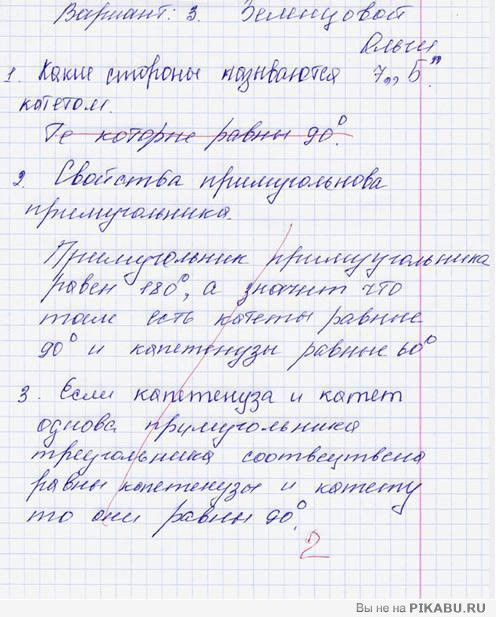 Вариант: 3. Зеленцовой
Ольги
1. Какие стороны называются 7 „Б"
катетом.
Те которые равны 90°.
2. Свойства примугольнова
примугольника.
Примугольник примуугольника
равен 180°, а значит что
там есть катеты равные
90° и капетенузы равные 60°
3. Если капетенуза и катет
однова примугольника
треугольника соотвецтвена
равны капетенузы и катету
то они равны 90°.
2
Вы не на PIKABU.RU